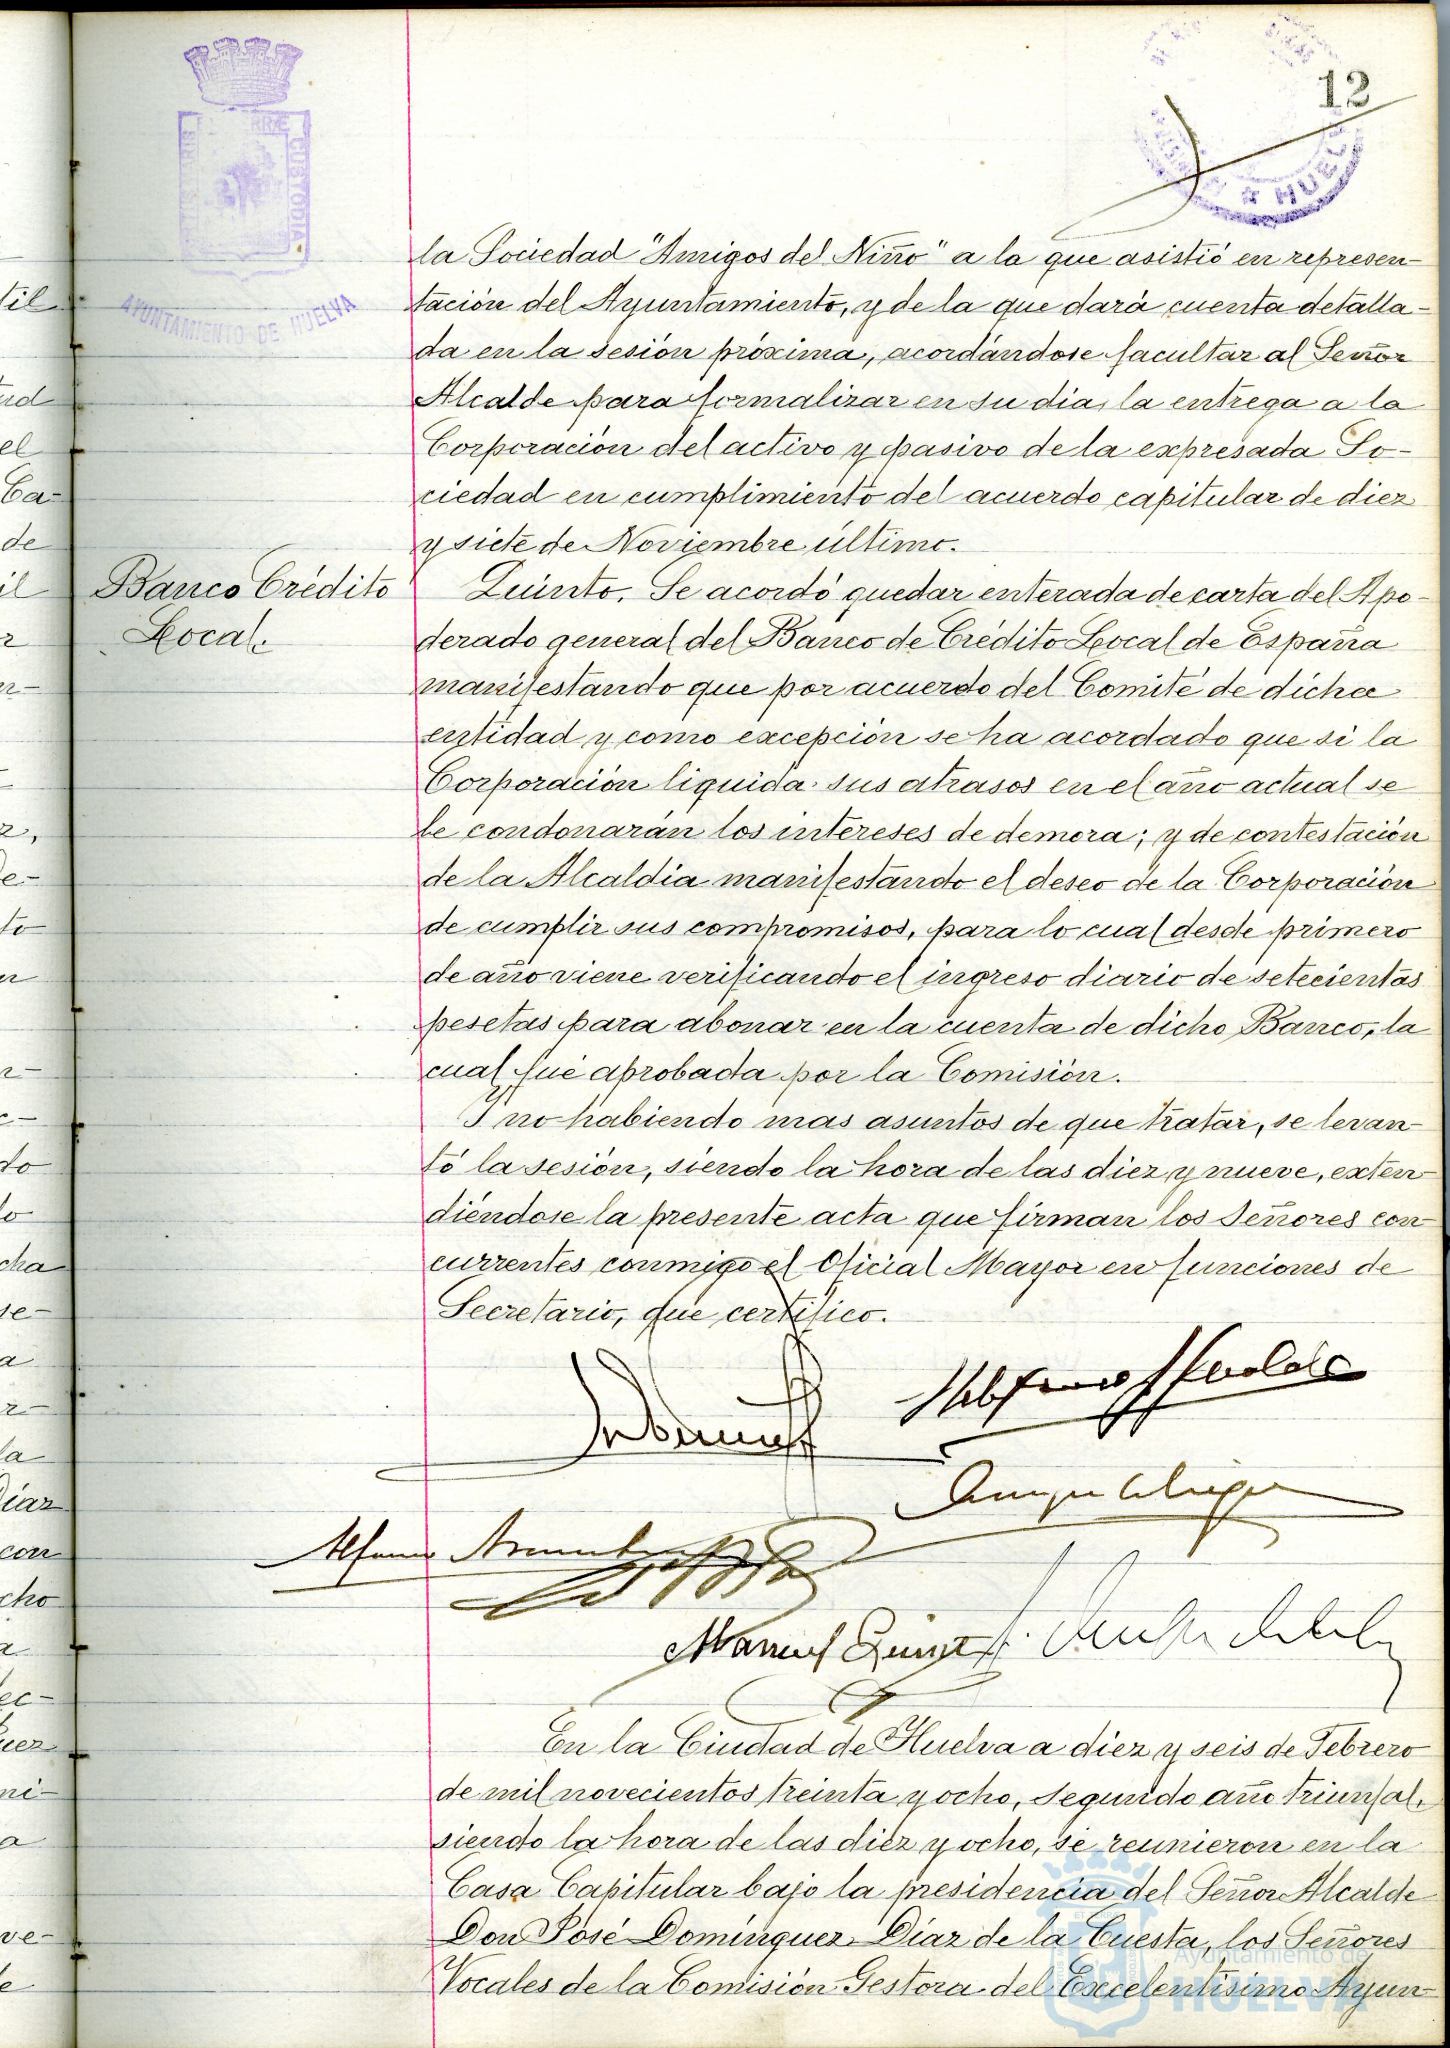 12
HUELVA
CUSTODIA
AYUNTAMIENTO DE HUELVA
la Sociedad "Amigos del Niño" a la que asistió en represen-
tación del Ayuntamiento, y de la que dará cuenta detalla-
da en la sesión próxima, acordándose facultar al Señor
Alcalde para formalizar en su dia, la entrega a la
Corporación del activo y pasivo de la expresada So-
ciedad en cumplimiento del acuerdo capitular de diez
y siete de Noviembre último.
Banco Crédito
Local.
Quinto. Se acordó quedar enterada de carta del Apo-
derado general del Banco de Crédito Local de España
manifestando que por acuerdo del Comité de dicha
entidad y como excepción se ha acordado que si la
Corporación liquida sus atrasos en el año actual se
le condonarán los intereses de demora; y de contestación
de la Alcaldía manifestando el deseo de la Corporación
de cumplir sus compromisos, para lo cual desde primero
de año viene verificando el ingreso diario de setecientas
pesetas para abonar en la cuenta de dicho Banco, la
cual fué aprobada por la Comisión.
Y no habiendo mas asuntos de que tratar, se levan-
tó la sesión, siendo la hora de las diez y nueve, exten-
diéndose la presente acta que firman los Señores con-
currentes conmigo el Oficial Mayor en funciones de
Secretario, que certifico.
Manuel
En la Ciudad de Huelva a diez y seis de Febrero
de mil novecientos treinta y ocho, segundo año triunfal,
siendo la hora de las diez y ocho, se reunieron en la
Casa Capitular bajo la presidencia del Señor Alcalde
Don José Domínguez Díaz de la Cuesta, los Señores
Vocales de la Comisión Gestora del Excelentísimo Ayun-
Ayuntamiento de
HUELVA